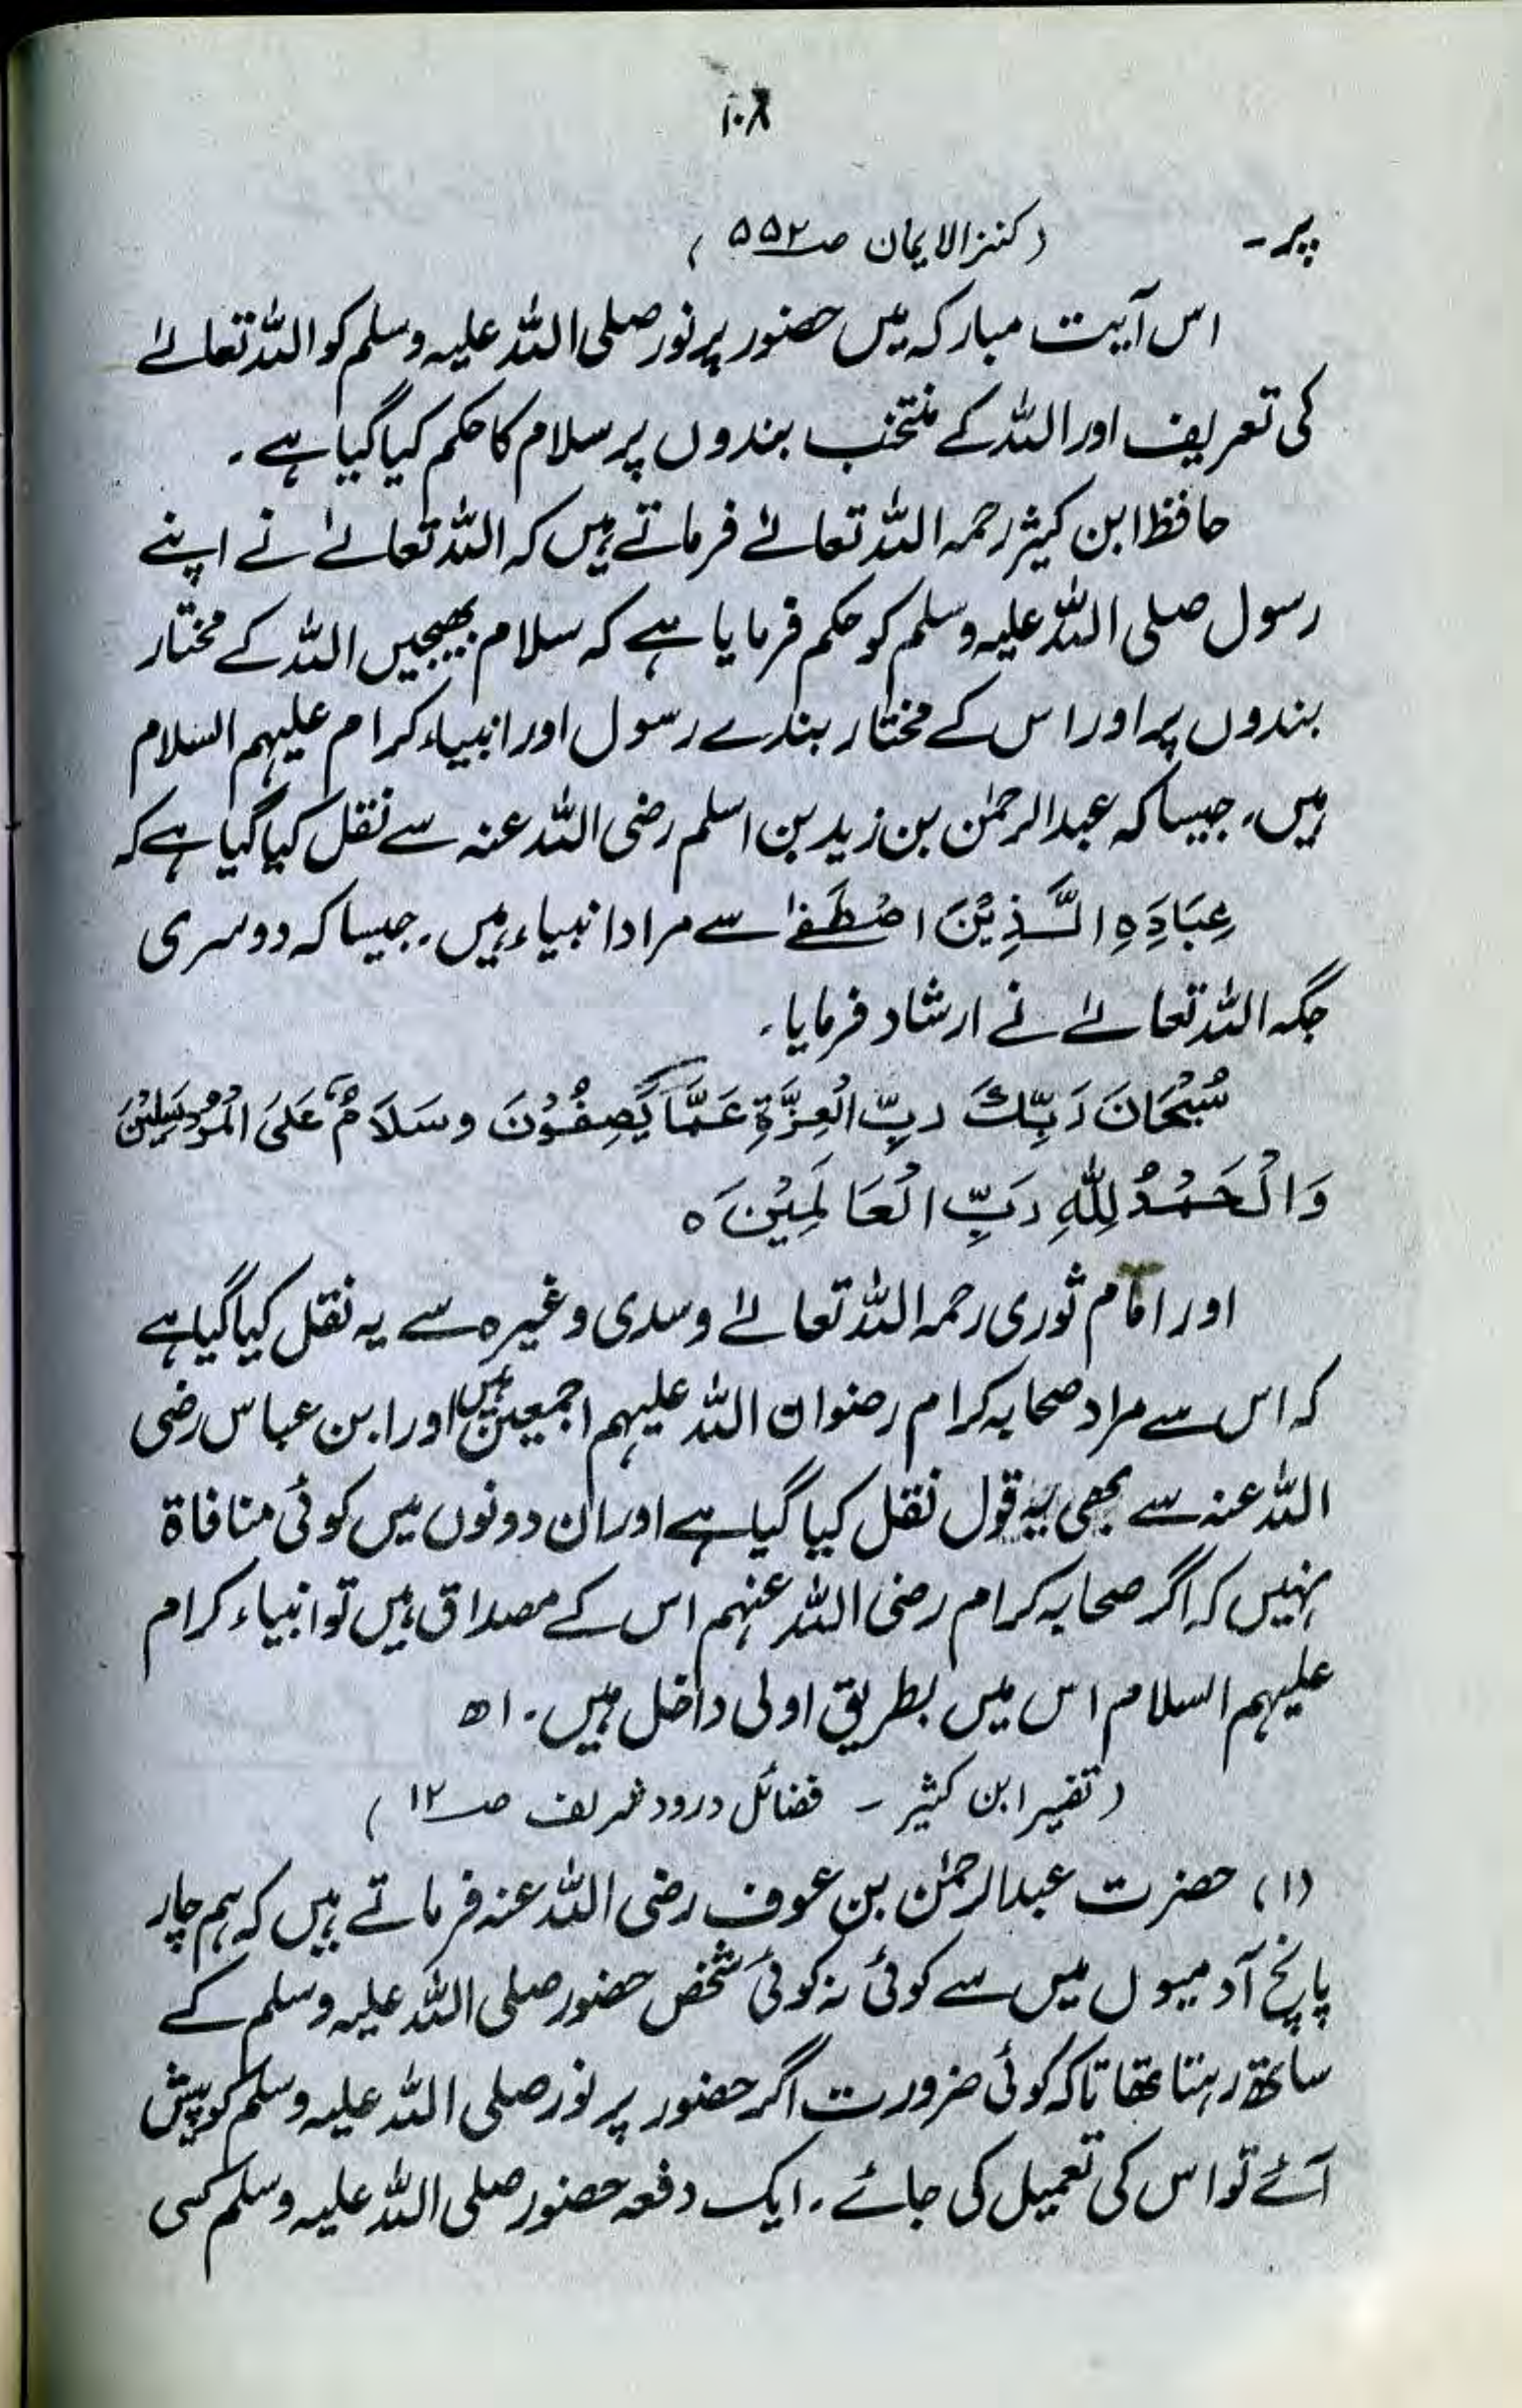 ۱۰۸
پر۔ (کنزالایمان صـ۵۵۲)
اس آیت مبارکہ میں حضور پرنور صلی اللہ علیہ وسلم کو اللہ تعالےٰ
کی تعریف اور اللہ کے منتخب بندوں پر سلام کا حکم کیا گیا ہے۔
حافظ ابن کیثر رحمہ اللہ تعالےٰ فرماتے ہیں کہ اللہ تعالےٰ نے اپنے
رسول صلی اللہ علیہ وسلم کو حکم فرمایا ہے کہ سلام بھیجیں اللہ کے مختار
بندوں پر اور اس کے مختار بندے رسول اور انبیاء کرام علیہم السلام
ہیں۔ جیسا کہ عبدالرحمٰن بن زید بن اسلم رضی اللہ عنہ سے نقل کیا گیا ہے کہ
عِبَادِهِ الَّذِیْنَ اصْطَفٰے سے مراد انبیاء ہیں۔ جیسا کہ دوسری
جگہ اللہ تعالےٰ نے ارشاد فرمایا۔
سُبْحَانَ رَبِّكَ رَبِّ الْعِزَّةِ عَمَّا یَصِفُوْنَ وسَلَامٌ عَلَی الْمُرْسَلِیْنَ
وَالْحَمْدُ لِلّٰهِ رَبِّ الْعَالَمِیْنَ ہ
اور امام ثوری رحمہ اللہ تعالےٰ و سدی وغیرہ سے یہ نقل کیا گیا ہے
کہ اس سے مراد صحابہ کرام رضوان اللہ علیہم اجمعین ہیں اور ابن عباس رضی
اللہ عنہ سے بھی یہ قول نقل کیا گیا ہے اور ان دونوں میں کوئی منافاة
نہیں کہ اگر صحابہ کرام رضی اللہ عنہم اس کے مصداق ہیں تو انبیاء کرام
علیہم السلام اس میں بطریق اولی داخل ہیں۔ اھ
(تفسیر ابن کثیر ـ فضائل درود شریف صـ۱۲)
(۱) حضرت عبدالرحمٰن بن عوف رضی اللہ عنہ فرماتے ہیں کہ ہم چار
پانچ آدمیوں میں سے کوئی نہ کوئی شخص حضور صلی اللہ علیہ وسلم کے
ساتھ رہتا تھا تاکہ کوئی ضرورت اگر حضور پر نور صلی اللہ علیہ وسلم کو پیش
آئے تو اس کی تعمیل کی جائے۔ ایک دفعہ حضور صلی اللہ علیہ وسلم کسی